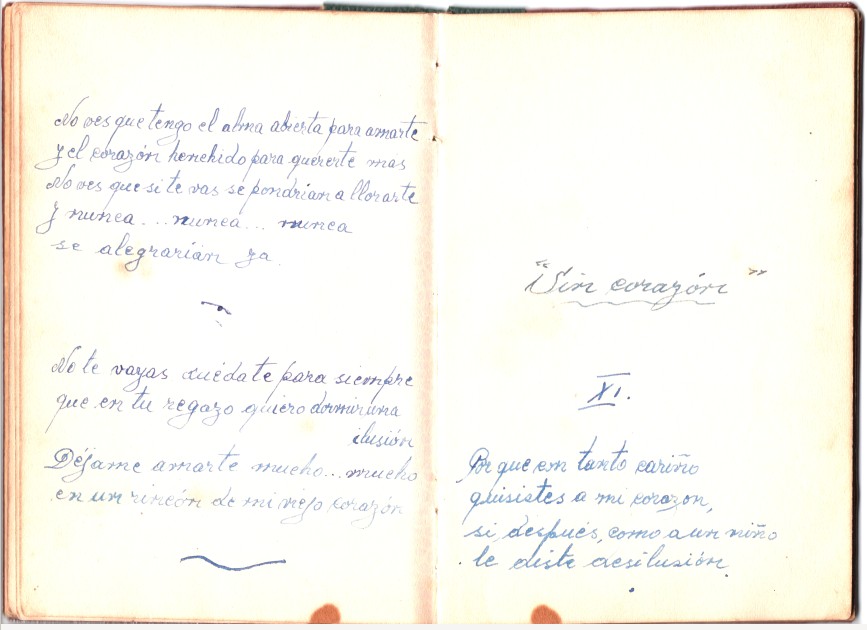 No ves que tengo el alma abierta para amarte
y el corazón henchido para quererte mas
No ves que si te vas se pondrian a llorarte
y nunca... nunca... nunca
se alegrarían ya.
No te vayas quédate para siempre
que en tu regazo quiero dormir una
ilusión
Déjame amarte mucho... mucho
en un rincón de mi viejo corazón
"Sin corazón"
XI.
Por que con tanto cariño
quisistes a mi corazon,
si, después, como a un niño
le diste desilusión.